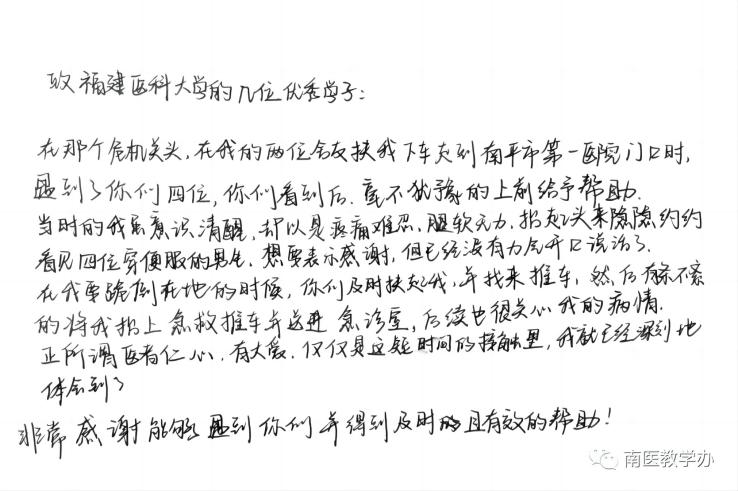 致福建医科大学的几位优秀学子：
在那个危机关头，在我的两位舍友扶我下车走到南平市第一医院门口时，
遇到了你们四位，你们看到后，毫不犹豫的上前给予帮助．
当时的我虽意识清醒，却以是疼痛难忍，腿软无力，抬起头来隐隐约约
看见四位穿便服的男生，想要表示感谢，但已经没有力气开口说话了．
在我要跪倒在地的时候，你们及时扶起我，并找来推车，然后有条不紊
的将我抬上急救推车并送进急诊室，后续也很关心我的病情．
正所谓医者仁心，有大爱，仅仅是这短时间的接触里，我就已经深刻地
体会到了
非常感谢能够遇到你们并得到及时的且有效的帮助！
南医教学办